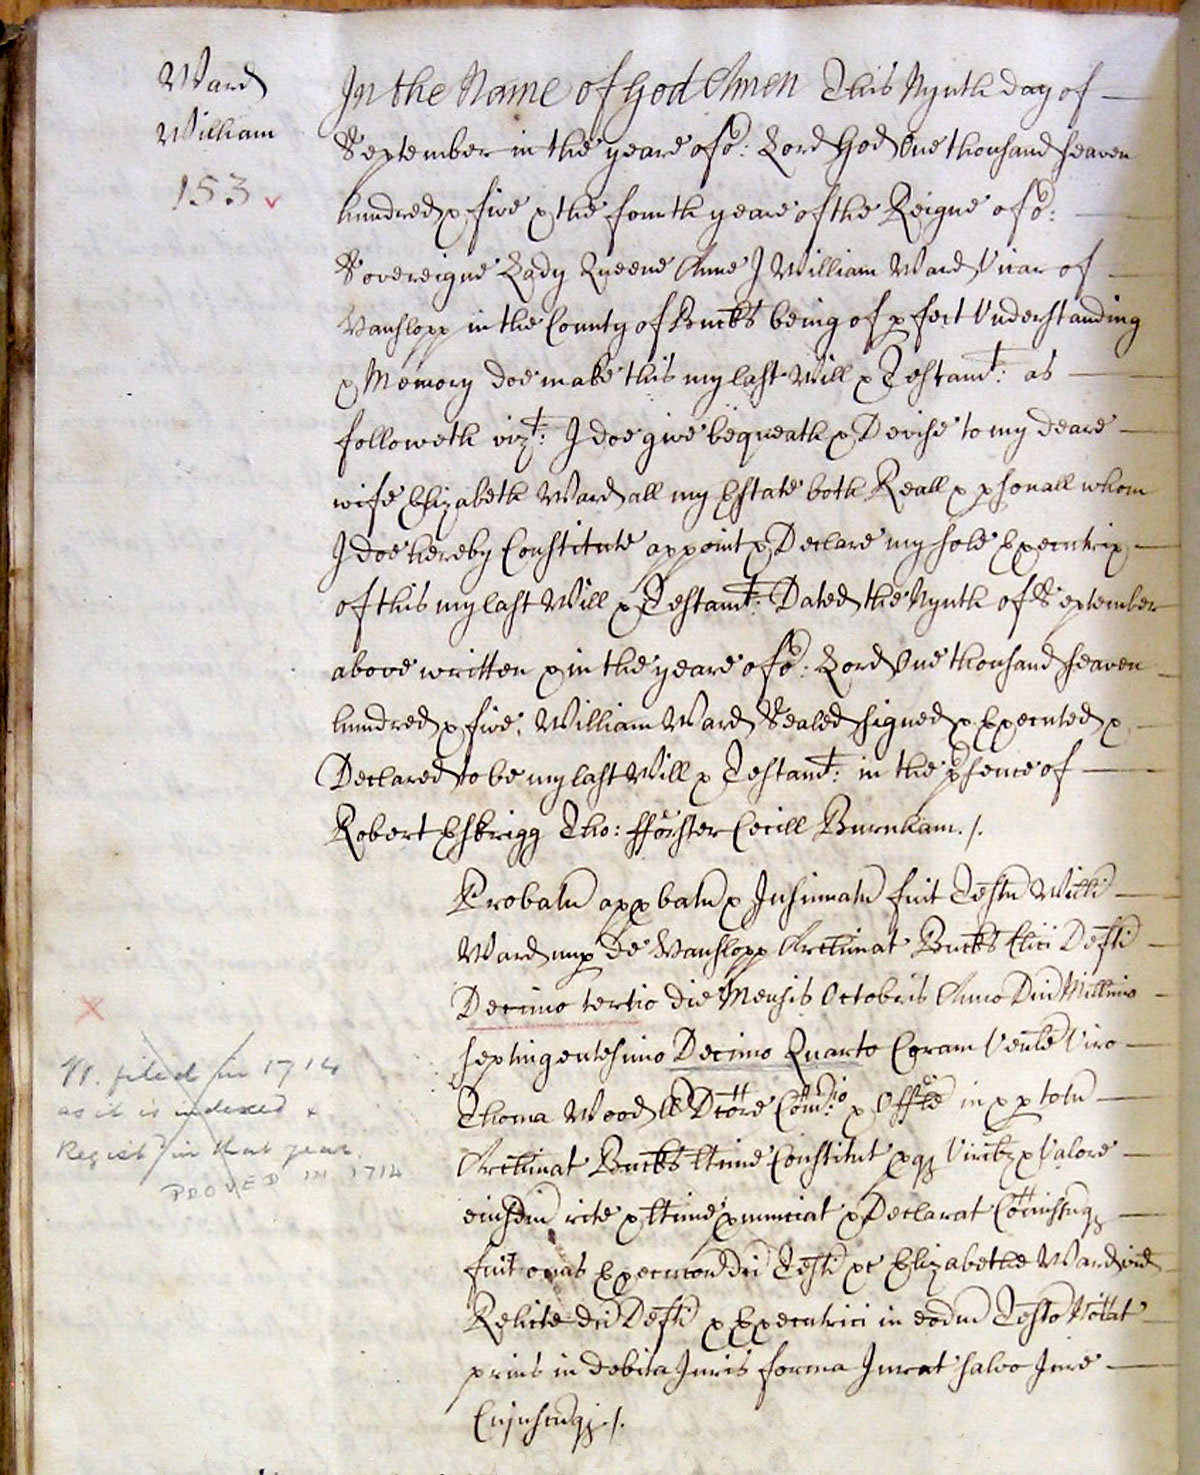 Ward
William
153
In the Name of God Amen This Nynth day of
September in the yeare of oʳ: Lord God One thousand seaven
hundred & five & the fourth yeare of the Reigne of oʳ:
Sovereigne Lady Queene Anne J William Ward Vicar of
Hanslopp in the County of Bucks being of pfect Understanding
& Memory doe make this my last Will & Testamᵗ: as
followeth vizᵗ: J doe give bequeath & Devise to my deare
wife Elizabeth Ward all my Estate both Reall & psonall whom
J doe hereby Constitute appoint & Declare my sole Executrix
of this my last Will & Testamᵗ: Dated the Nynth of September
above written & in the yeare of oʳ: Lord One thousand seaven
hundred & five, William Ward Sealed signed & Executed &
Declared to be my last Will & Testamᵗ: in the psence of
Robert Eskrigg Tho: fforster Cecill Burnham ./.
Probatu appbatu & Jnsinuatu fuit Testu Willi
Ward nup de Hanslopp Archinat Bucks Clici Defti
Decimo tertio die Mensis Octobris Anno Dni Millimo
septingentesimo Decimo Quarto Coram Venle Viro
Thoma Wood Dctore & in & p totu
Archinat Bucks ltime Constitut & Valore
eiusdem rite & ltime pnunciat & Declarat
fuit onus Execucon dci Testi Elizabethe Ward vid
Relicte dci Defti & Executrici in eodm Testo Noiat
prius in debita Juris forma Jurat salvo Jure
Cujuscuqz ./.
X
W. filed in 1714
as it is indexed &
Regist in that year.
PROVED IN 1714